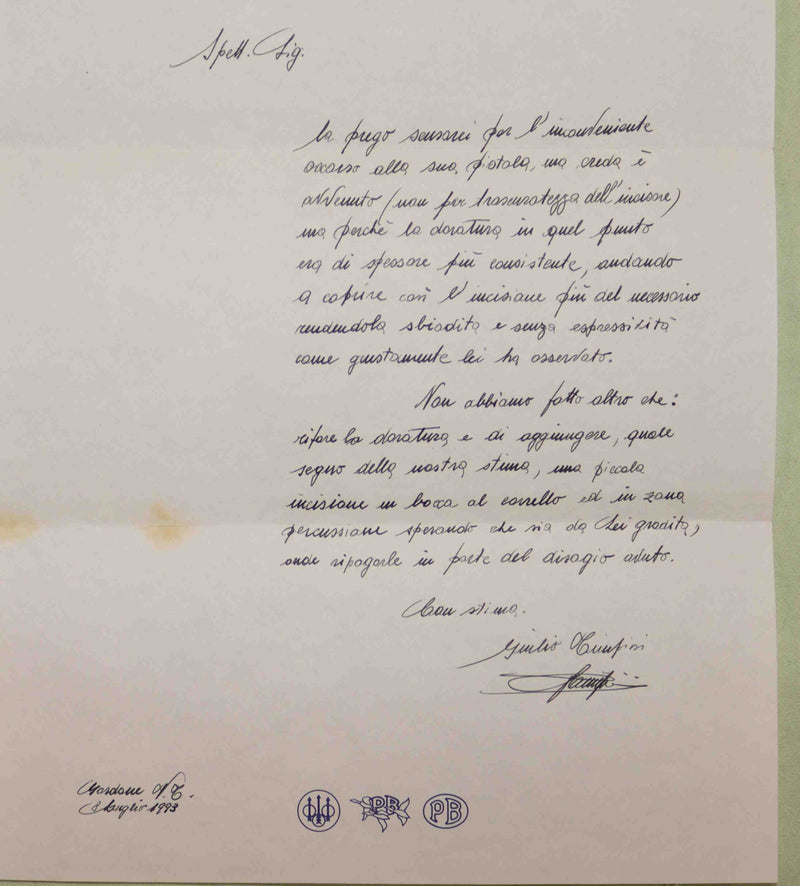 Spett. Sig.
la prego scusarci per l'inconveniente
occorso alla sua pistola, ma creda è
avvenuto (non per trascuratezza dell'incisore)
ma perchè la doratura in quel punto
era di spessore più consistente, andando
a coprire così l'incisione più del necessario
rendendola sbiadita e senza espressilità
come giustamente lei ha osservato.
Non abbiamo fatto altro che:
rifare la doratura e di aggiungere, quale
segno della nostra stima, una piccola
incisione in bocca al carrello ed in zona
percussione sperando che sia da Lei gradita,
onde ripagarle in parte del disagio avuto.
Con stima.
Giulio
Gardone V.T.
Luglio 1993
PB
PB